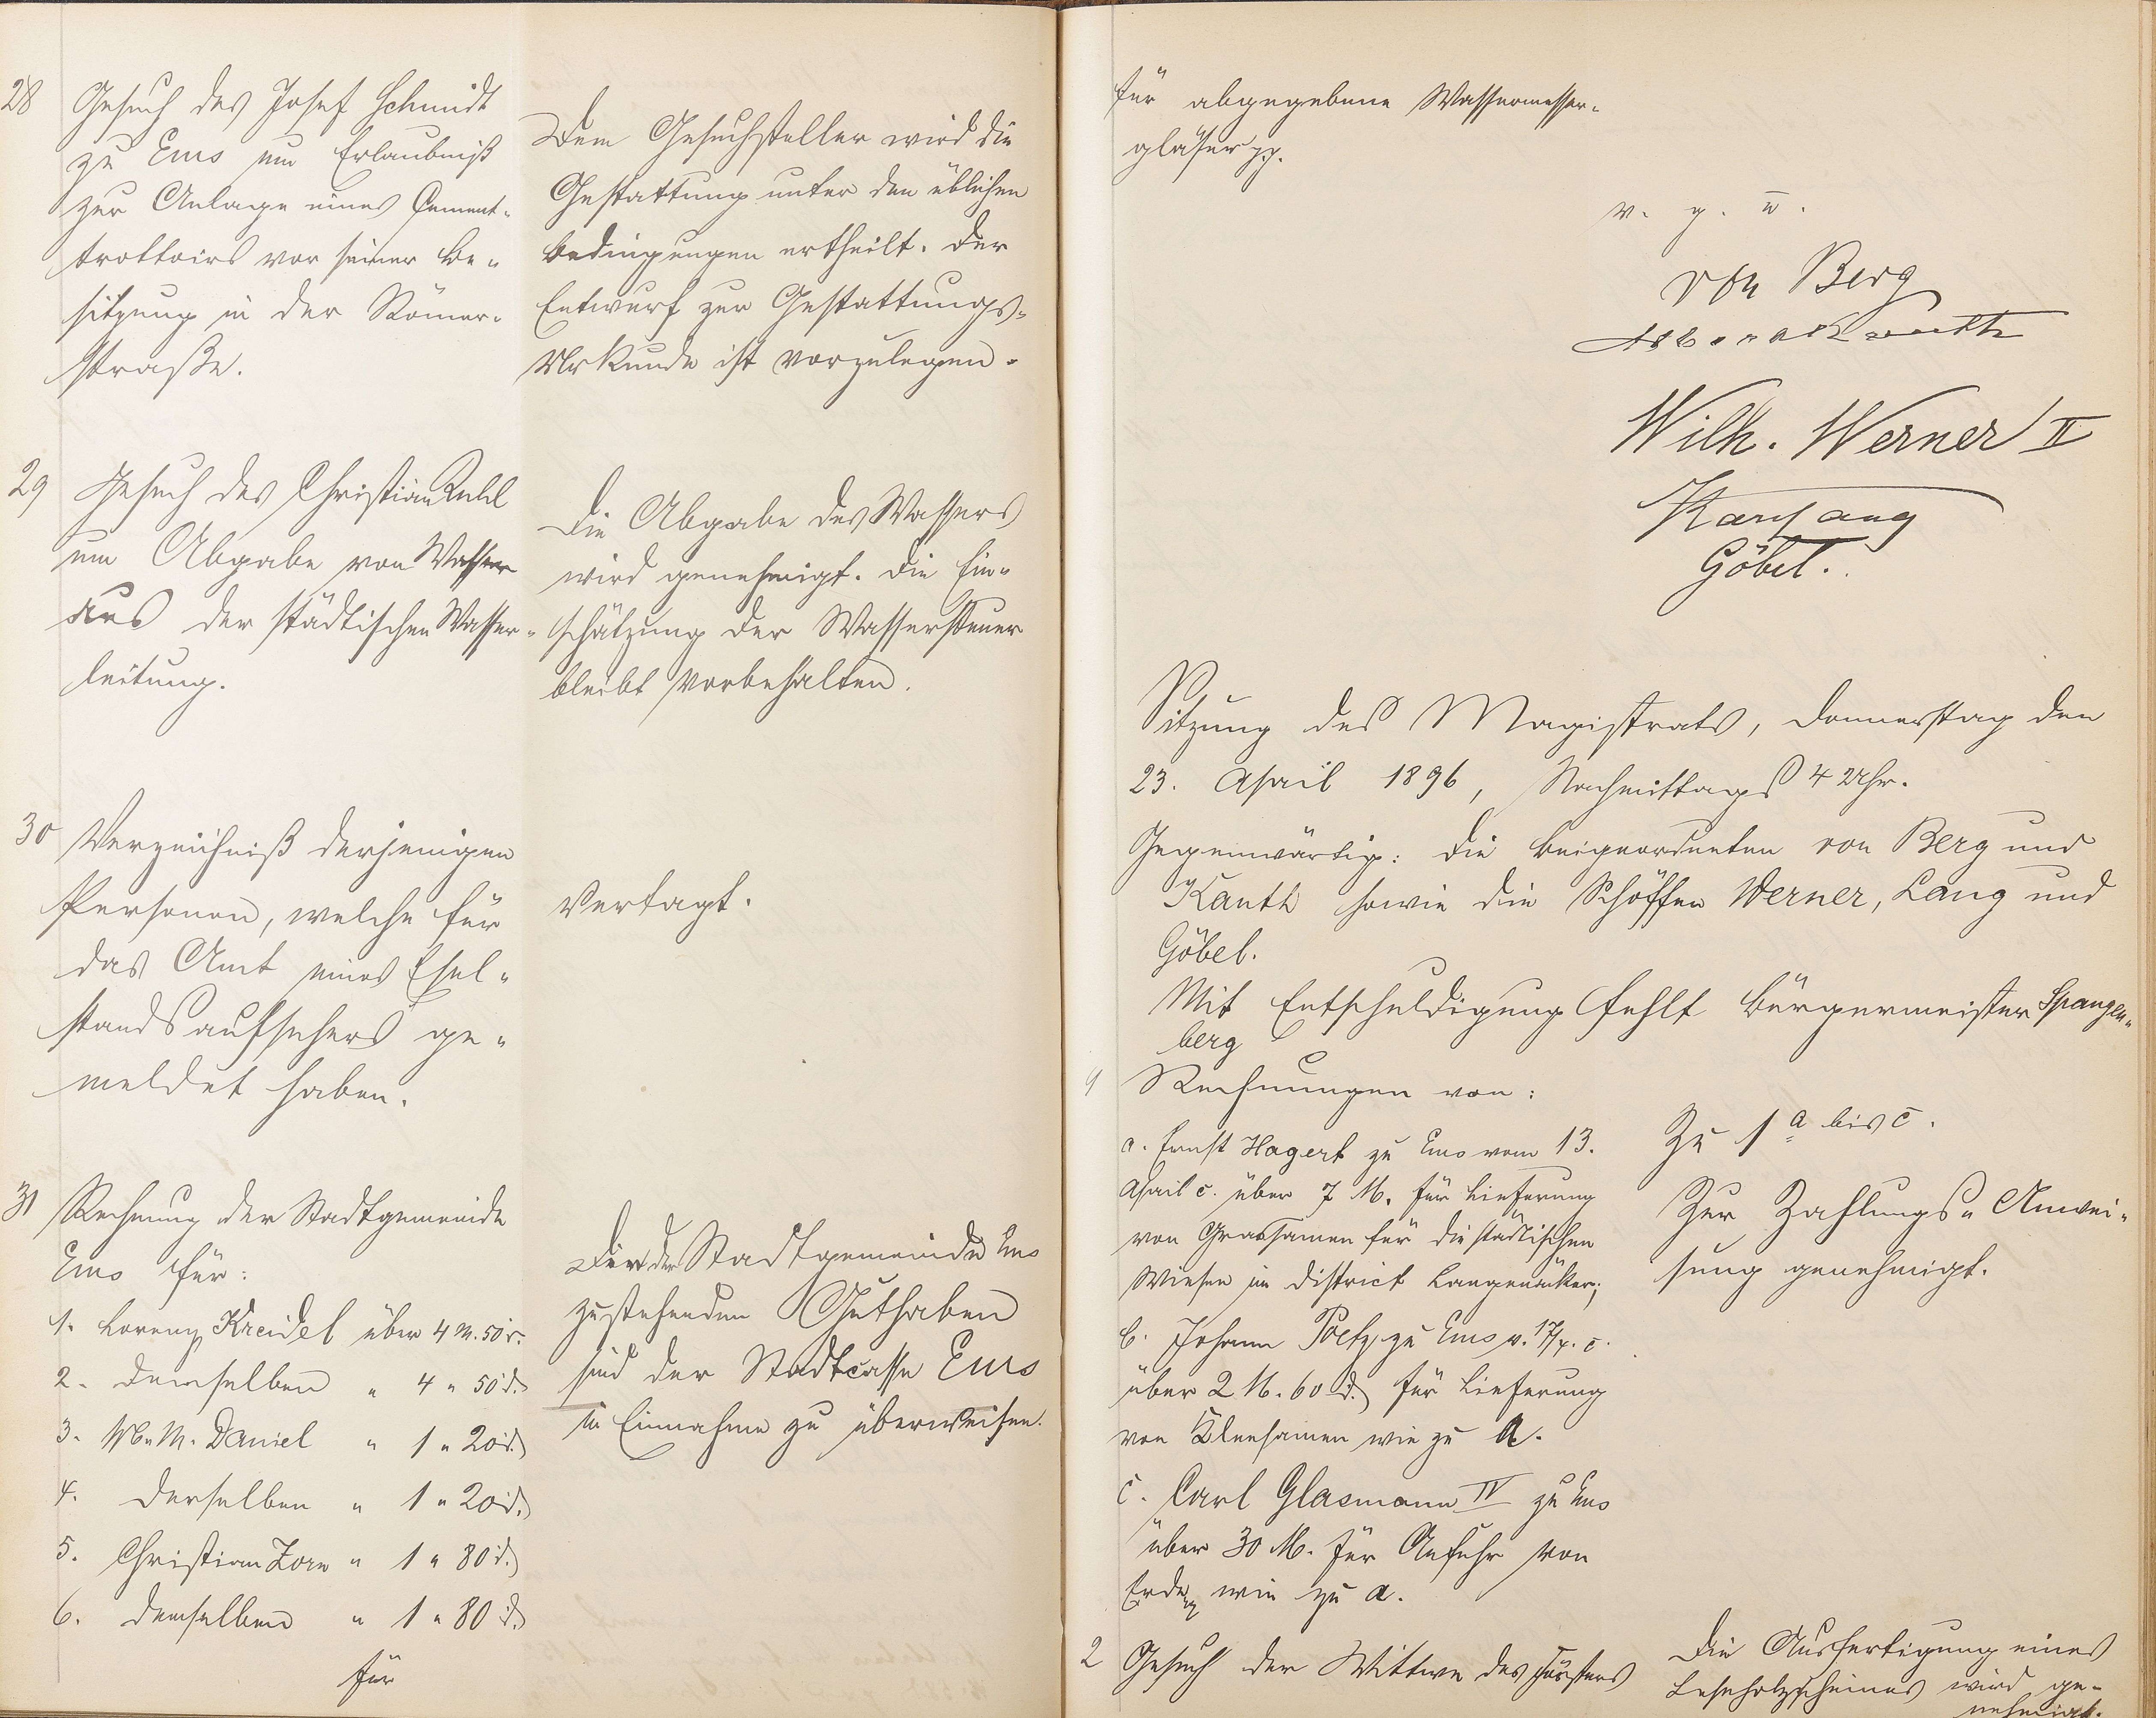 28 Gesuch des Josef Schmidt
zu Ems um Erlaubniß
zur Anlage eines Cement-
trottoirs vor seiner Be-
sitzung in der Römer-
straße.
Dem Gesuchsteller wird die
Gestattung unter den üblichen
Bedingungen ertheilt. Der
Entwurf zur Gestattungs-
Urkunde ist vorzulegen.
29 Gesuch des Christian
um Abgabe von Wasser
aus der städtischen Wasser-
leitung.
Die Abgabe des Wassers
wird genehmigt. Die Ein-
schätzung der Wassersteuer
bleibt vorbehalten.
30 Verzeichniß derjenigen
Personen, welche für
das Amt eines Esel-
standsaufsehers ge-
meldet haben.
Vertagt.
31 Rechnung der Stadtgemeinde
Ems für:
1. Lorenz Kreidel über 4 M. 50 d.
2. Demselben " 4 " 50 d.
3. M. M. Daniel " 1 " 20 d.
4. Derselben " 1 " 20 d.
5. Christian Zorn " 1 " 80 d.
6. Demselben " 1 " 80 d.
für
Die der Stadtgemeinde Ems
zustehenden Guthaben
sind der Stadtcasse Ems
in Einnahme zu überweisen.
für abgegebene Wassermesser-
gläser pp.
v. g. u.
von Berg
Wilh. Werner II
Göbel.
Sitzung des Magistrats, Donnerstag den
23. April 1896, Nachmittags 4 Uhr.
Gegenwärtig: Die Beigeordneten von Berg und
Kauth sowie die Schöffen Werner, Lang und
Göbel.
Mit Entschuldigung fehlt Bürgermeister Spangen-
berg
1 Rechnungen von:
a. Ernst Hagert zu Ems vom 13.
April c. über 7 M. für Lieferung
von Grassamen für die städtischen
Wiesen im District Langenäcker;
b. Johann Poetz zu Ems v. 17/4. c.
über 2 M. 60 d. für Lieferung
von Kleesamen wie zu a.
c. Carl Glasmann IV zu Ems
über 30 M. für Anfuhr von
Erde wie zu a.
Zu 1 a bis c.
Zur Zahlungs-Anwei-
sung genehmigt.
2 Gesuch der Wittwe des Försters
Die Ausfertigung eines
Leseholzscheines wird ge-
nehmigt.